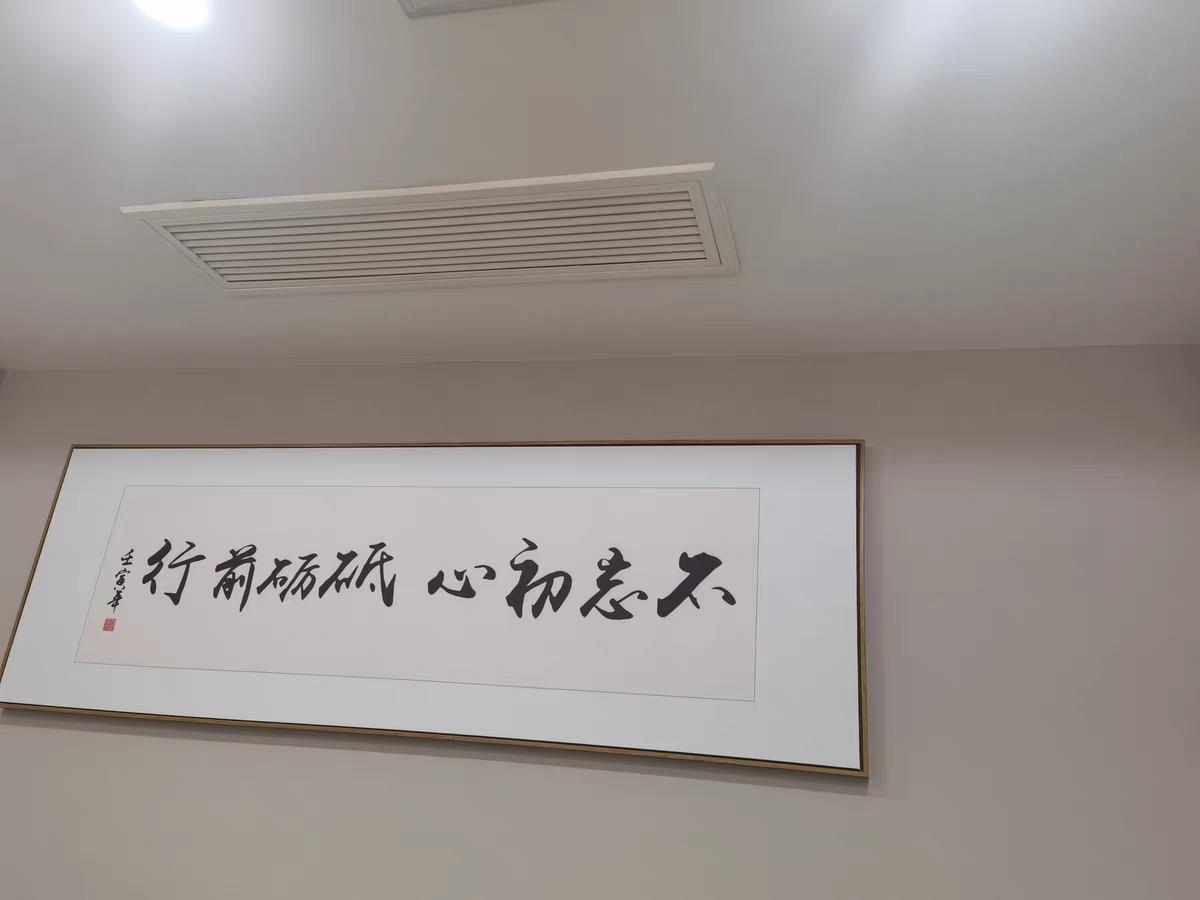 不忘初心 砥砺前行
壬寅